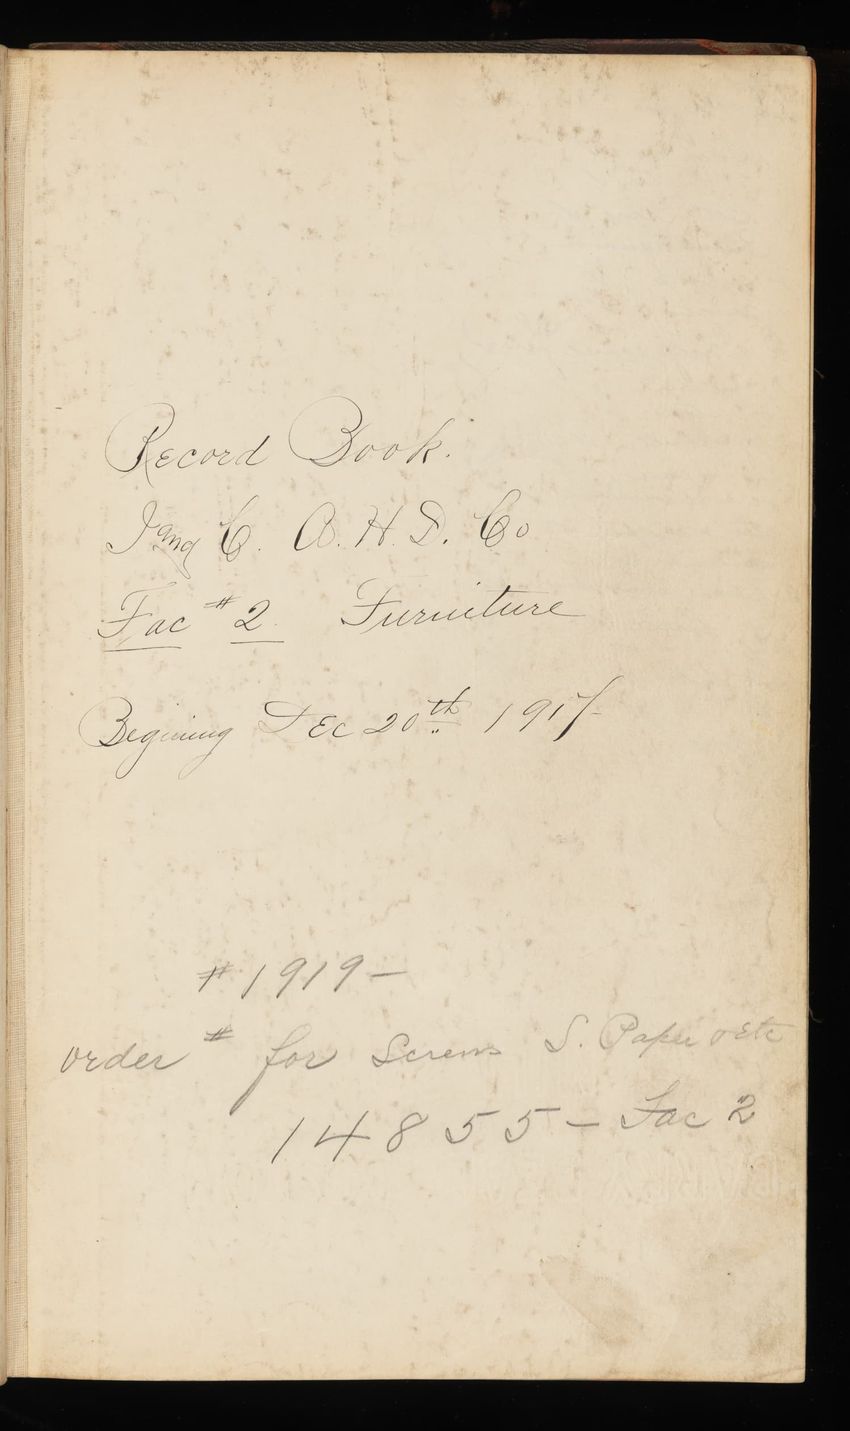 Record Book.
J and C. A. H. D. Co
Fac # 2. Furniture
Begining Dec 20th 1917-
# 1919 —
order # for Screws S. Paper etc
14855 — Fac 2